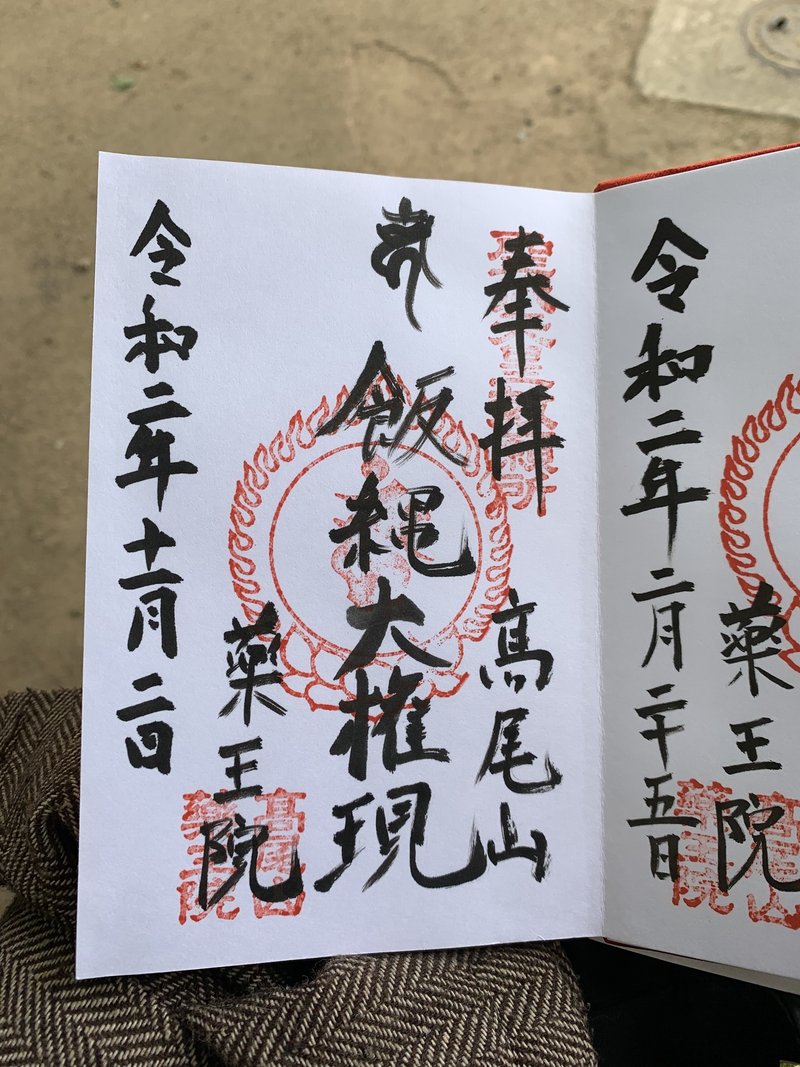 藥王院
令和二年二月二十五日
奉拝
高尾山
飯縄大権現
藥王院
高尾山
藥王院
令和二年十一月二日